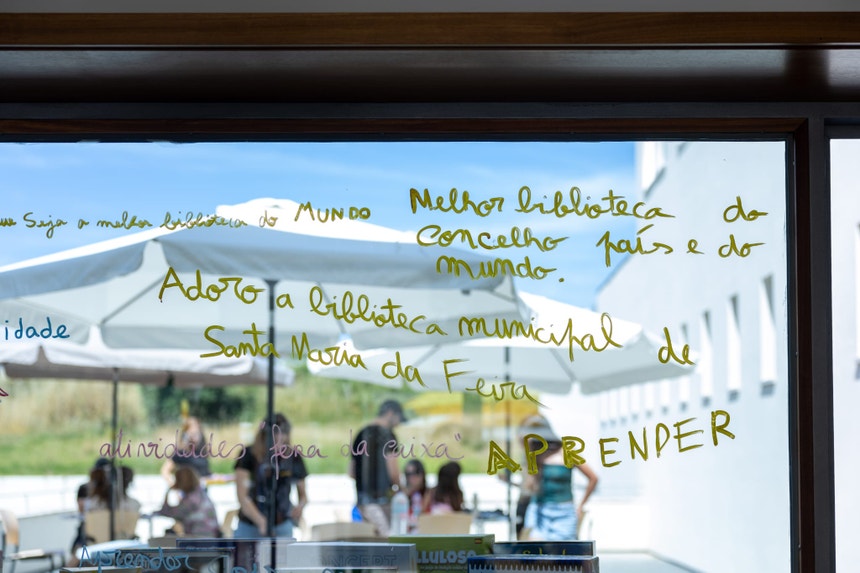 Seja a melhor biblioteca do MUNDO
Melhor biblioteca do
concelho país e do
mundo.
Adoro a biblioteca municipal de
Santa Maria da Feira
idade
atividades "fora da caixa"
APRENDER
Aprender
LLULOSA